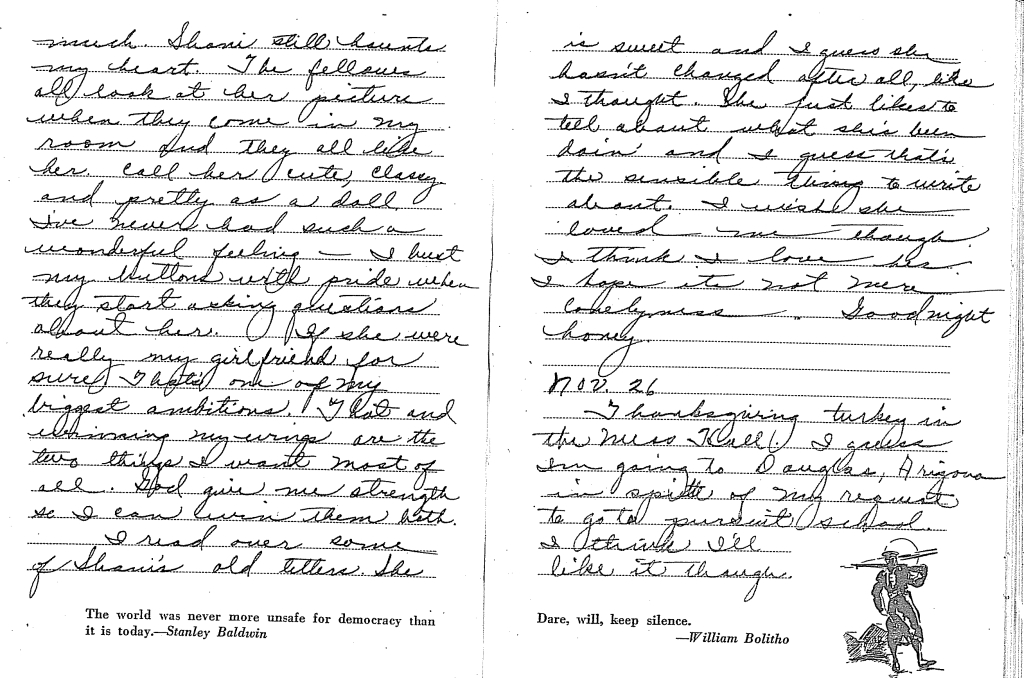 much. Shani still haunts
my heart. The fellows
all look at her picture
when they come in my
room and they all like
her call her cute, classy
and pretty as a doll
I've never had such a
wonderful feeling — I bust
my buttons with pride when
they start asking questions
about her. If she were
really my girlfriend for
sure! That's one of my
biggest ambitions. That and
winning my wings are the
two things I want most of
all. God give me strength
so I can win them both.
I read over some
of Shani's old letters. She
The world was never more unsafe for democracy than
it is today.—Stanley Baldwin
is sweet and I guess she
hasn't changed after all, like
I thought. She just likes to
tell about what she's been
doin' and I guess that's
the sensible thing to write
about. I wish she
loved me though.
I think I love her.
I hope its not mere
lonelyness. Goodnight
honey.
Nov. 26
Thanksgiving turkey in
the Mess Hall! I guess
I'm going to Douglas, Arizona
in spite of my request
to go to pursuit school.
I think I'll
like it though.
Dare, will, keep silence.
—William Bolitho